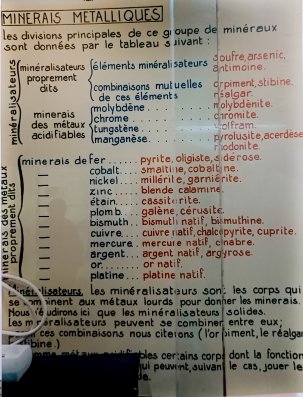 MINERAIS METALLIQUES
les divisions principales de ce groupe de minéraux
sont données par le tableau suivant :
minéralisateurs
minéralisateurs proprement dits
éléments minéralisateurs soufre, arsenic, antimoine.
combinaisons mutuelles de ces éléments orpiment, stibine. réalgar
minerais des métaux acidifiables
molybdène... molybdénite.
chrome... chromite.
tungstène... wolfram.
manganèse... pyrolusite, acerdèse rhodonite.
minerais des métaux proprement dits
minerais de fer.... pyrite, oligiste, sidérose.
— cobalt.... smaltine, cobaltine.
— nickel.... millérite, garniérite.
— zinc.... blende calamine.
— étain.... cassitérite.
— plomb.... galène, cérusite.
— bismuth... bismuth natif, bismuthine.
— cuivre.... cuivre natif, chalcopyrite, cuprite.
— mercure... mercure natif, cinabre.
— argent... argent natif, argyrose.
— or....... or natif.
— platine... platine natif.
Minéralisateurs, les minéralisateurs sont les corps qui
se combinent aux métaux lourds pour donner les minerais.
Nous étudirons ici que les minéralisateurs solides.
Les minéralisateurs peuvent se combiner entre eux;
ces combinaisons nous citerons (l'orpiment, le réalgar
stibine.)
comme métaux acidifiables certains corps dont la fonction
qui peuvent, suivant le cas, jouer le